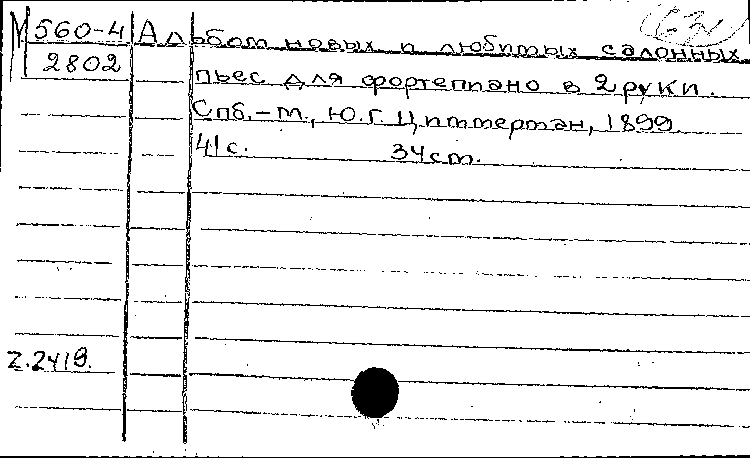 М 560-4
2802
Альбом новых и любимых салонных
пьес для фортепиано в 2 руки.
Спб.-М., Ю.Г. Циммерман, 1899.
41с. 34см.
Z.2419.